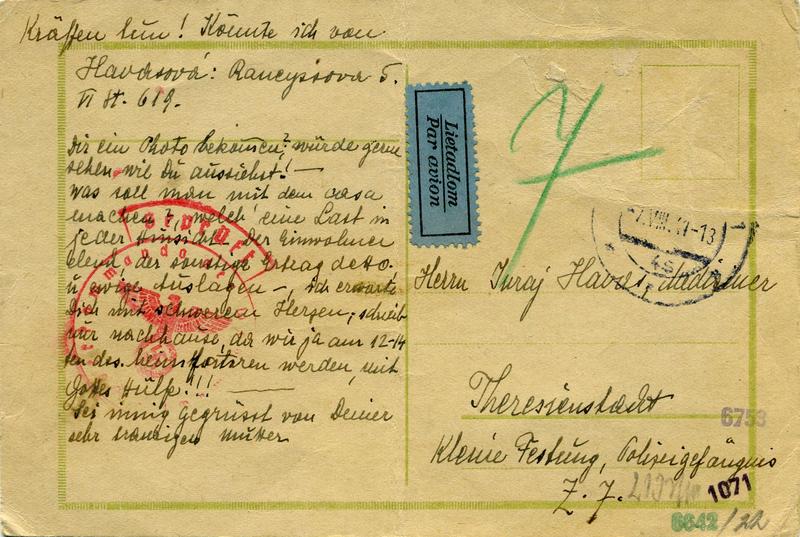 Kräften tun! Könnte ich von
Havasová: Rancyssova 5.
VI St. 619.
Dir ein Photo bekomen? würde gern
sehen wie Du aussiehst! —
was soll man mit dem casa
machen?, welch' eine Last in
jeder Hinsicht, der Einwohner
elend, der sonstige Ertrag detto.
u. ewige Auslagen —, ich erwarte
Dich mit schwerem Herzen, schreib
nur nachhause, da wir ja am 12-14
ten des. heimfahren werden, mit
Gottes Hülfe!!! —
Sei innig gegrüsst von Deiner
sehr traurigen Mutter
Geprüft
Lietadlom
Par avion
7
7.VIII.41-13
Herrn Juraj Havas, Mediziner
Theresienstadt
Kleine Festung, Polizeigefängnis
Z. 7.
6753
1071
6642/22